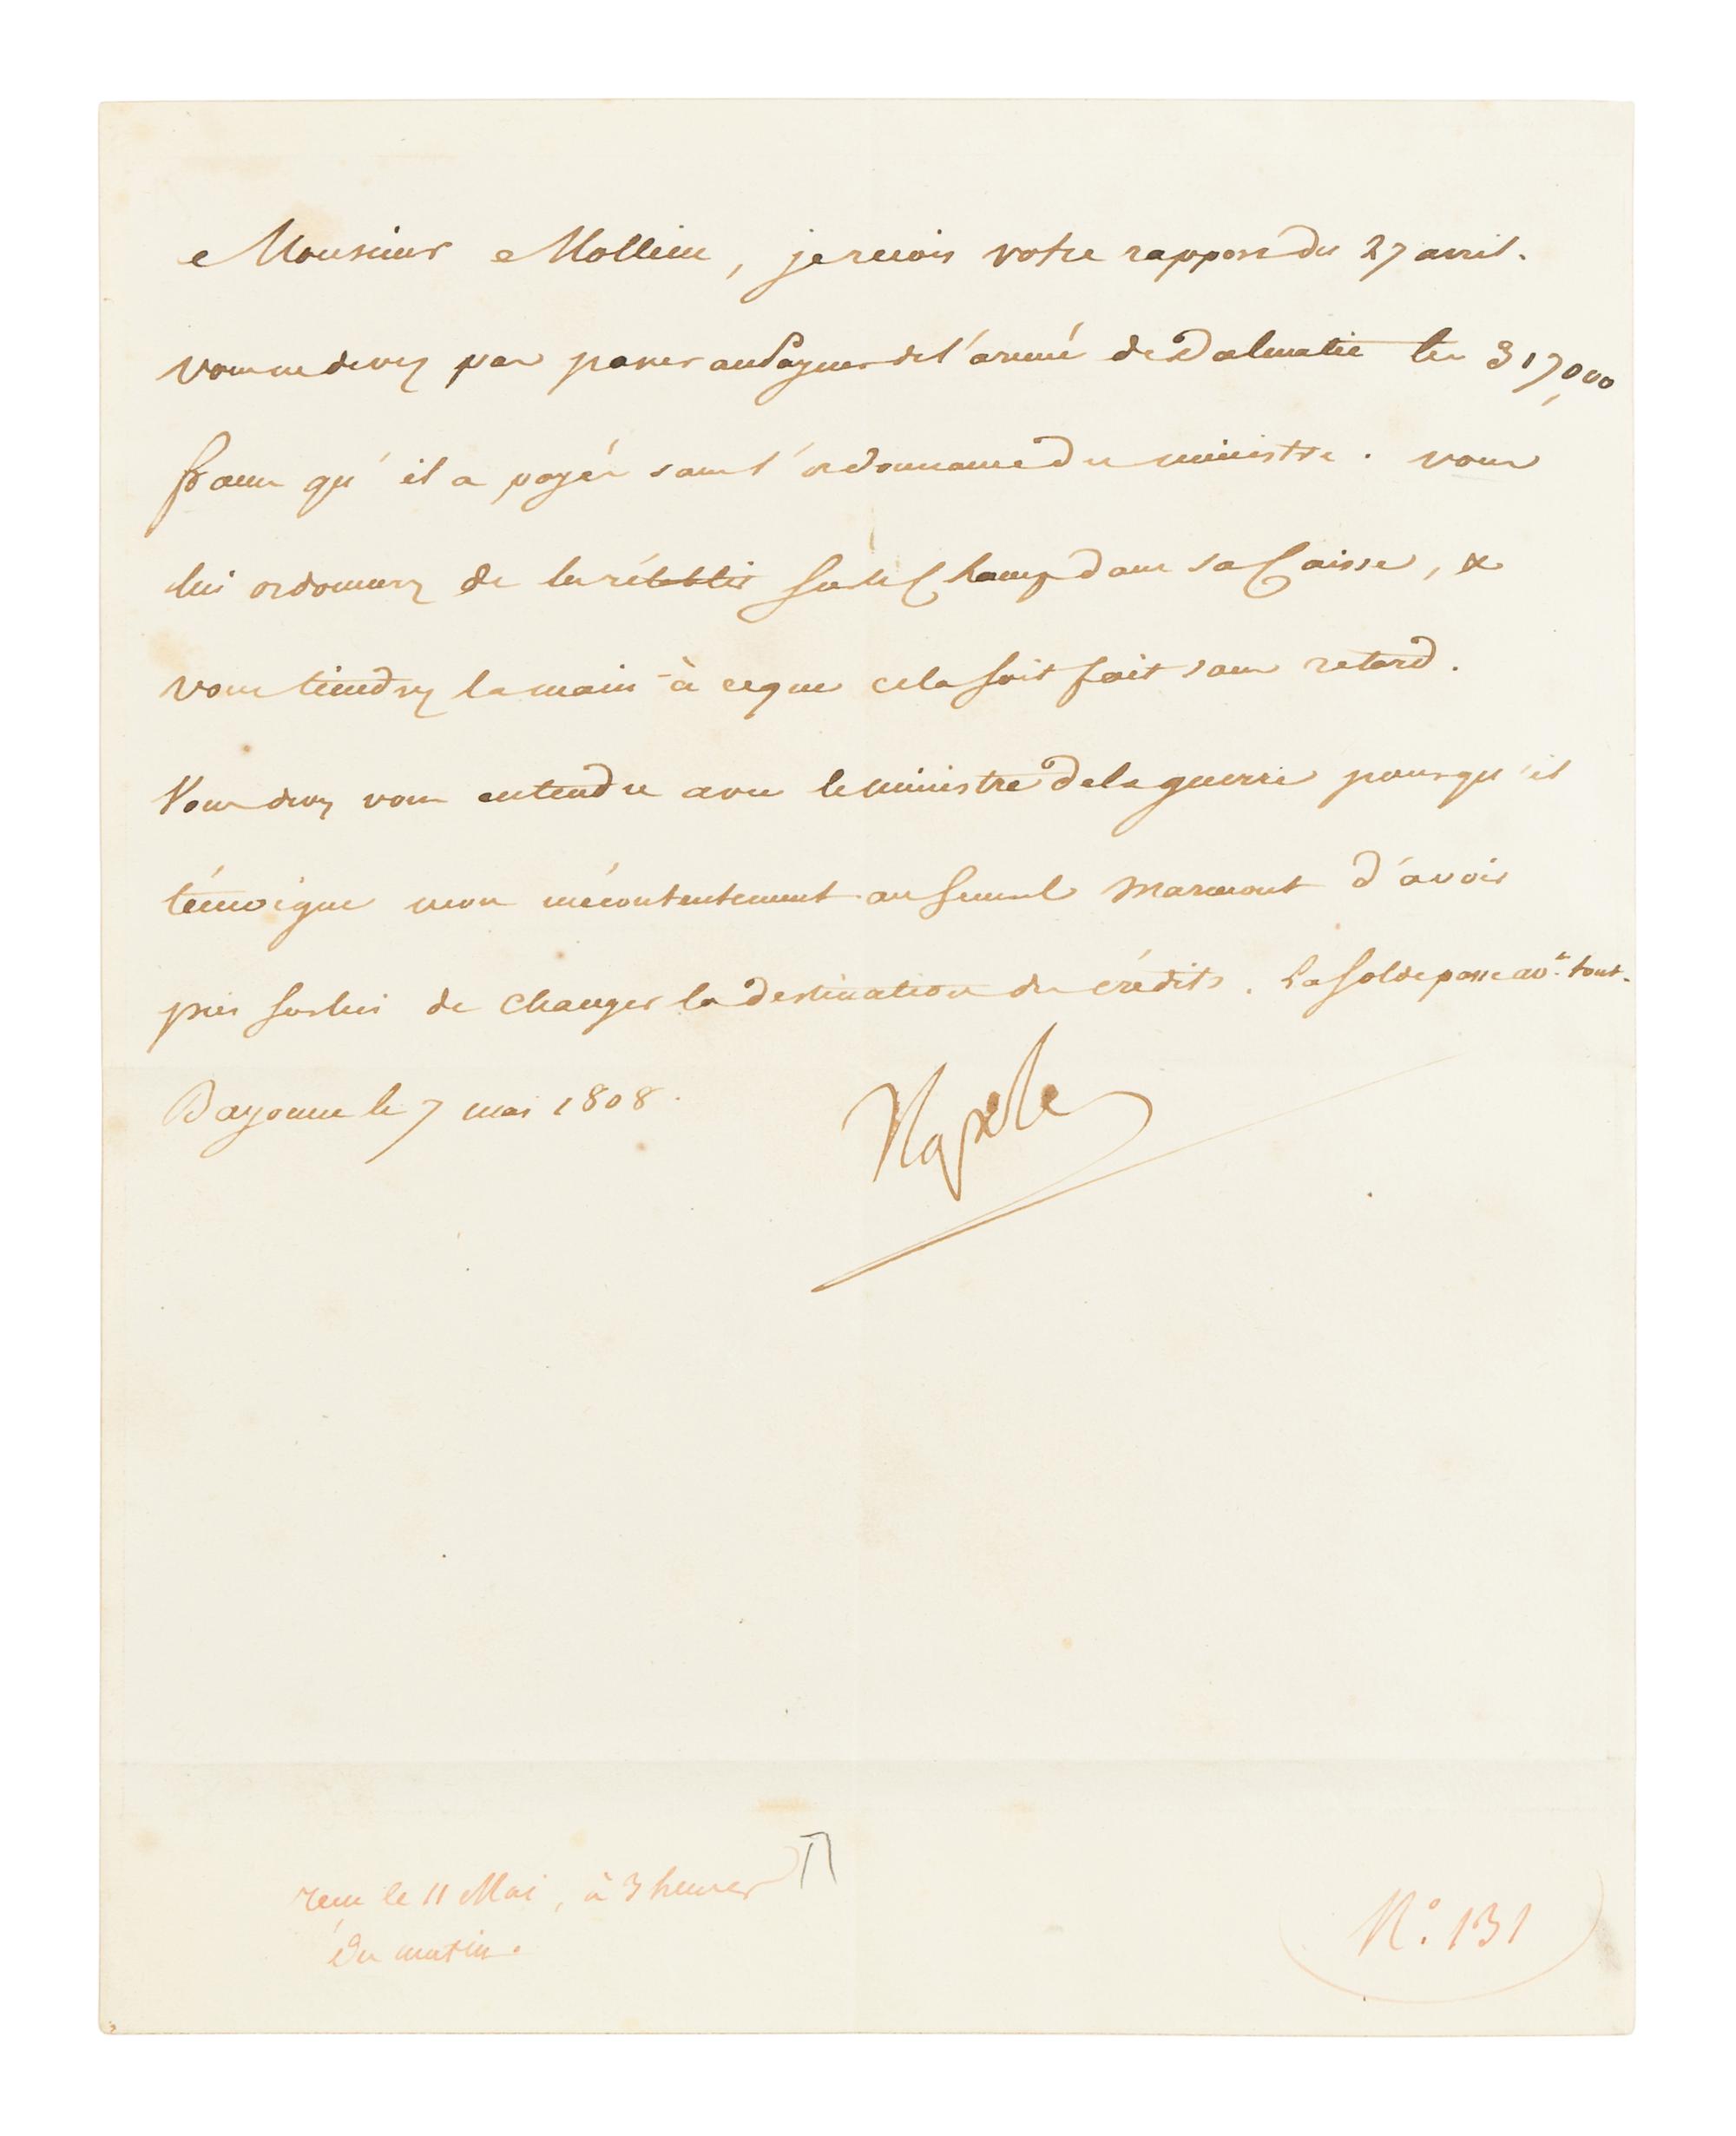 Monsieur Mollien, je recois votre rapport du 27 avril.
vous ne devez pas passer au Payeur de l'armée de Dalmatie les 317,000
francs qu'il a payés sans l'ordonnance du ministre. vous
lui ordonnerez de les rétablir sur le Champ dans sa Caisse, &
vous tiendrez la main à ce que cela soit fait sans retard.
Vous devez vous entendre avec le ministre de la guerre pour qu'il
témoigne mon mécontentement au Général Marmont d'avoir
pris sur lui de changer la destination des crédits. La solde passe avt. tout.
Bayonne le 7 mai 1808.
Napole
reçu le 11 Mai, à 3 heures
du matin.
N° 131